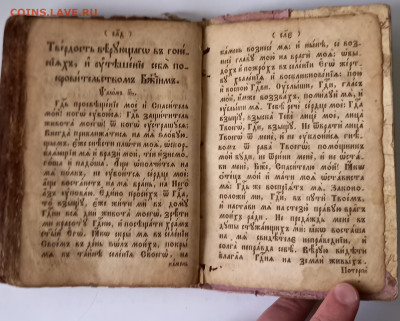 COINS.LAVE.RU
Твердость вѣрꙋющагѡ въ гоне-
нїѧхъ, и оутѣшенїе себѧ по-
кровительствомъ Бж҃їимъ.
Гд҇ь просвѣщенїе мое и Спаситель
мой: когѡ оубоюсѧ: Гд҇ь защититель
живота моегѡ: ѿ когѡ оустрашꙋсѧ:
Внегда приближатисѧ на мѧ злобꙋю-
щымъ, еже снѣсти плоти моѧ, ѡскор-
блѧющїи мѧ и врази мои, тїи изнемо-
гоша и падоша. Аще ѡполчитсѧ на
мѧ полкъ, не оубоитсѧ сердце мое:
аще востанетъ на мѧ брань, на Него
азъ оуповаю. Едино просихъ ѿ Гд҇а,
то взыщꙋ, еже жити ми въ домꙋ
Гд҇ни всѧ дни живота моегѡ, зрѣти
ми красотꙋ Гд҇ню, и посѣщати храмъ
ст҃ый Егѡ. Ꙗкѡ скры мѧ въ селенїи
Своемъ въ день ѕѡлъ моихъ, покры
мѧ въ тайнѣ селенїѧ Своегѡ, на
камень
камень вознесе мѧ: и нн҃ѣ, се воз-
несе главꙋ мою на враги моѧ: ѡбы-
дохъ и пожрохъ въ селенїи Егѡ жерт-
вꙋ хваленїѧ и восклицновенїѧ: пою
и воспою Гд҇еви. Оуслыши, Гд҇и, гласъ
мой, имже воззвахъ, помилꙋй мѧ, и
оуслыши мѧ. Тебѣ рече сердце мое: Гд҇а
взыщꙋ, взыска Тебе лице мое, лица
Твоегѡ, Гд҇и, взыщꙋ. Не ѿврати лица
Твоегѡ ѿ мене, и не оуклонисѧ гнѣ-
вомъ ѿ раба Твоегѡ: помощникъ
мой бꙋди, не ѿрини мене, и не ѡста-
ви мене, Бж҃е, Спасителю мой! Ꙗкѡ
отецъ мой и мати моѧ ѡстависта
мѧ: Гд҇ь же воспрїѧтъ мѧ. Законо-
положи ми, Гд҇и, въ пꙋти Твоемъ,
и настави мѧ на стезю правꙋю врагъ
моихъ ради. Не предаждь мене въ
дꙋшы стꙋжающихъ ми: ꙗкѡ восташа
на мѧ свидѣтеле неправеднїи, и
солга неправда себѣ. Вѣрꙋю видѣти
благаѧ Гд҇нѧ на земли живыхъ.
Потерпи